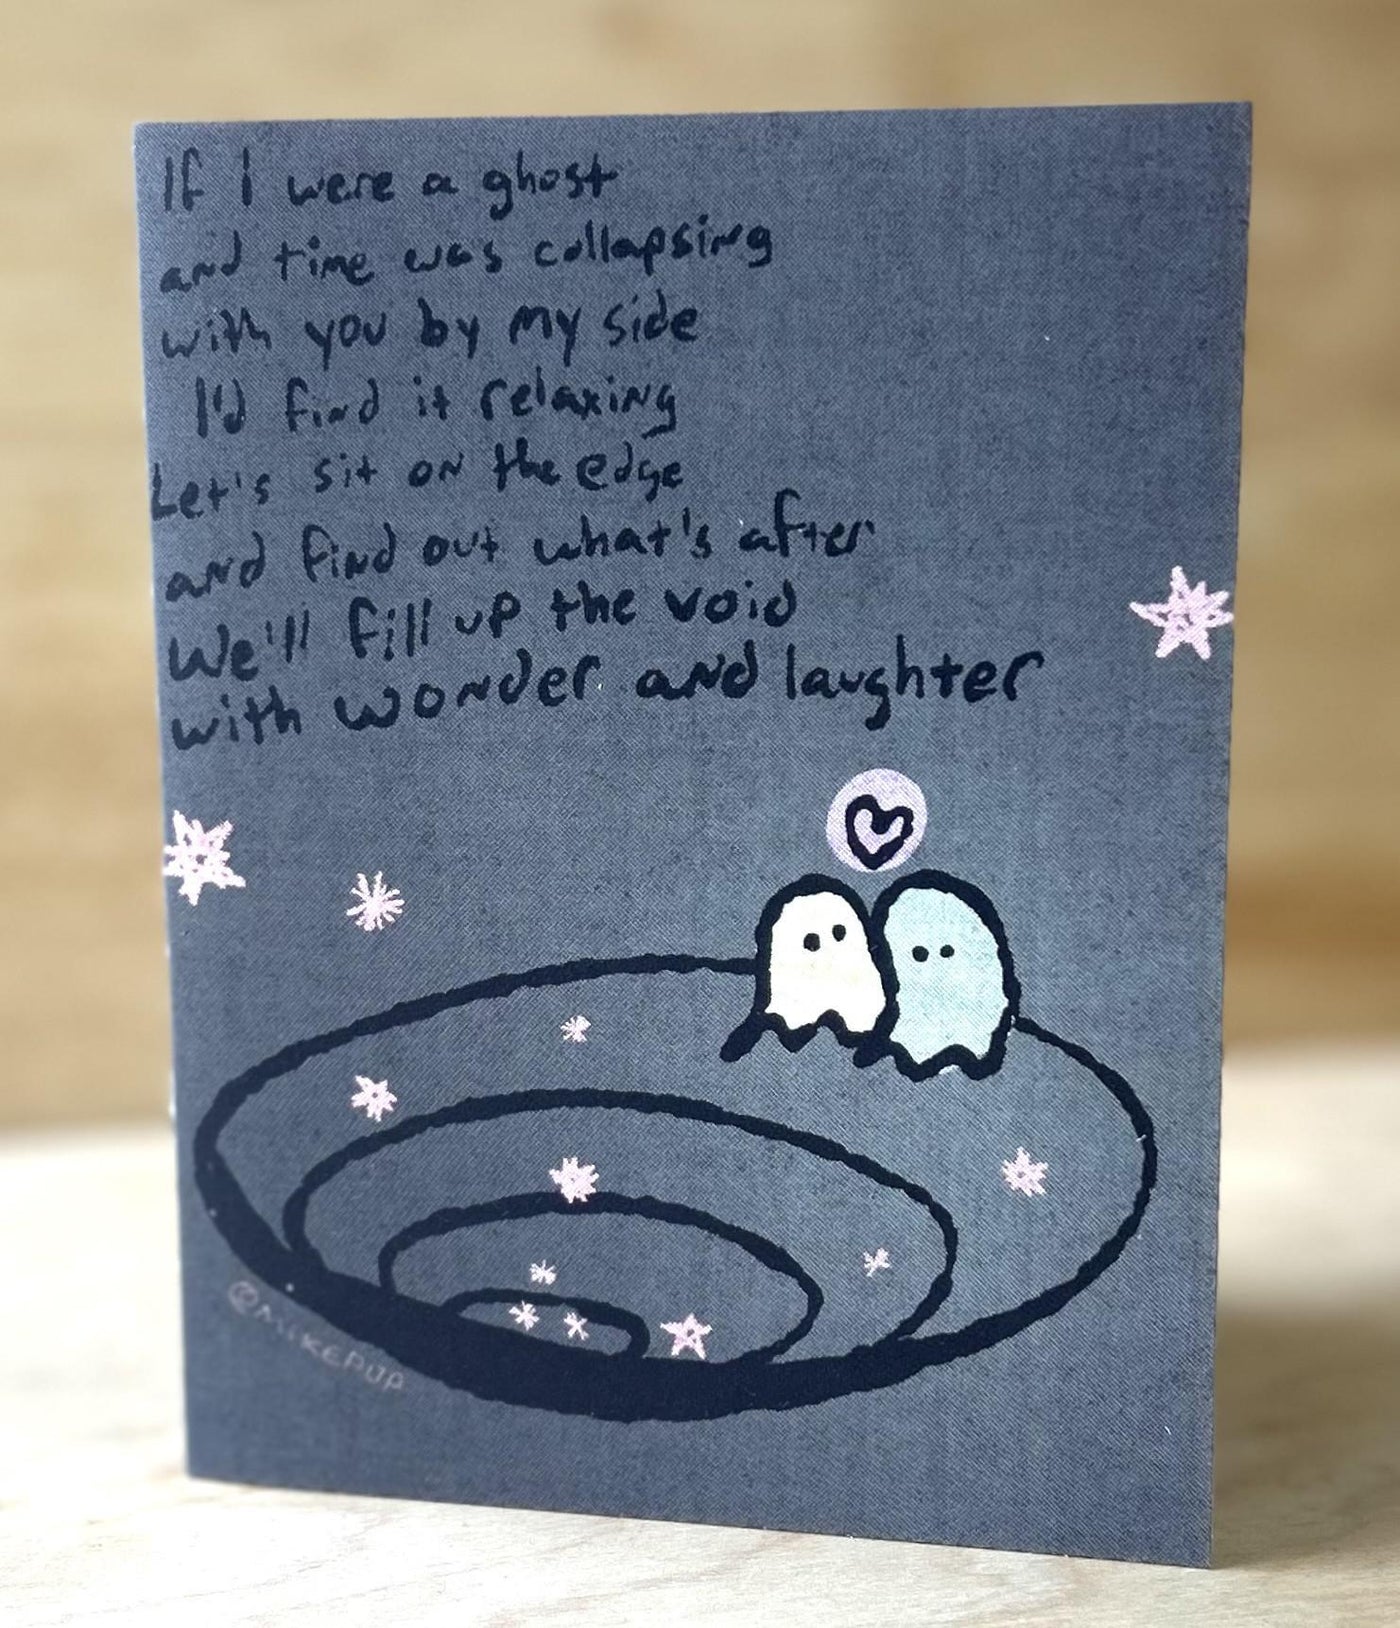 If I were a ghost
and time was collapsing
with you by my side
I'd find it relaxing
Let's sit on the edge
and find out what's after
We'll fill up the void
with wonder and laughter
@MIKEPUP